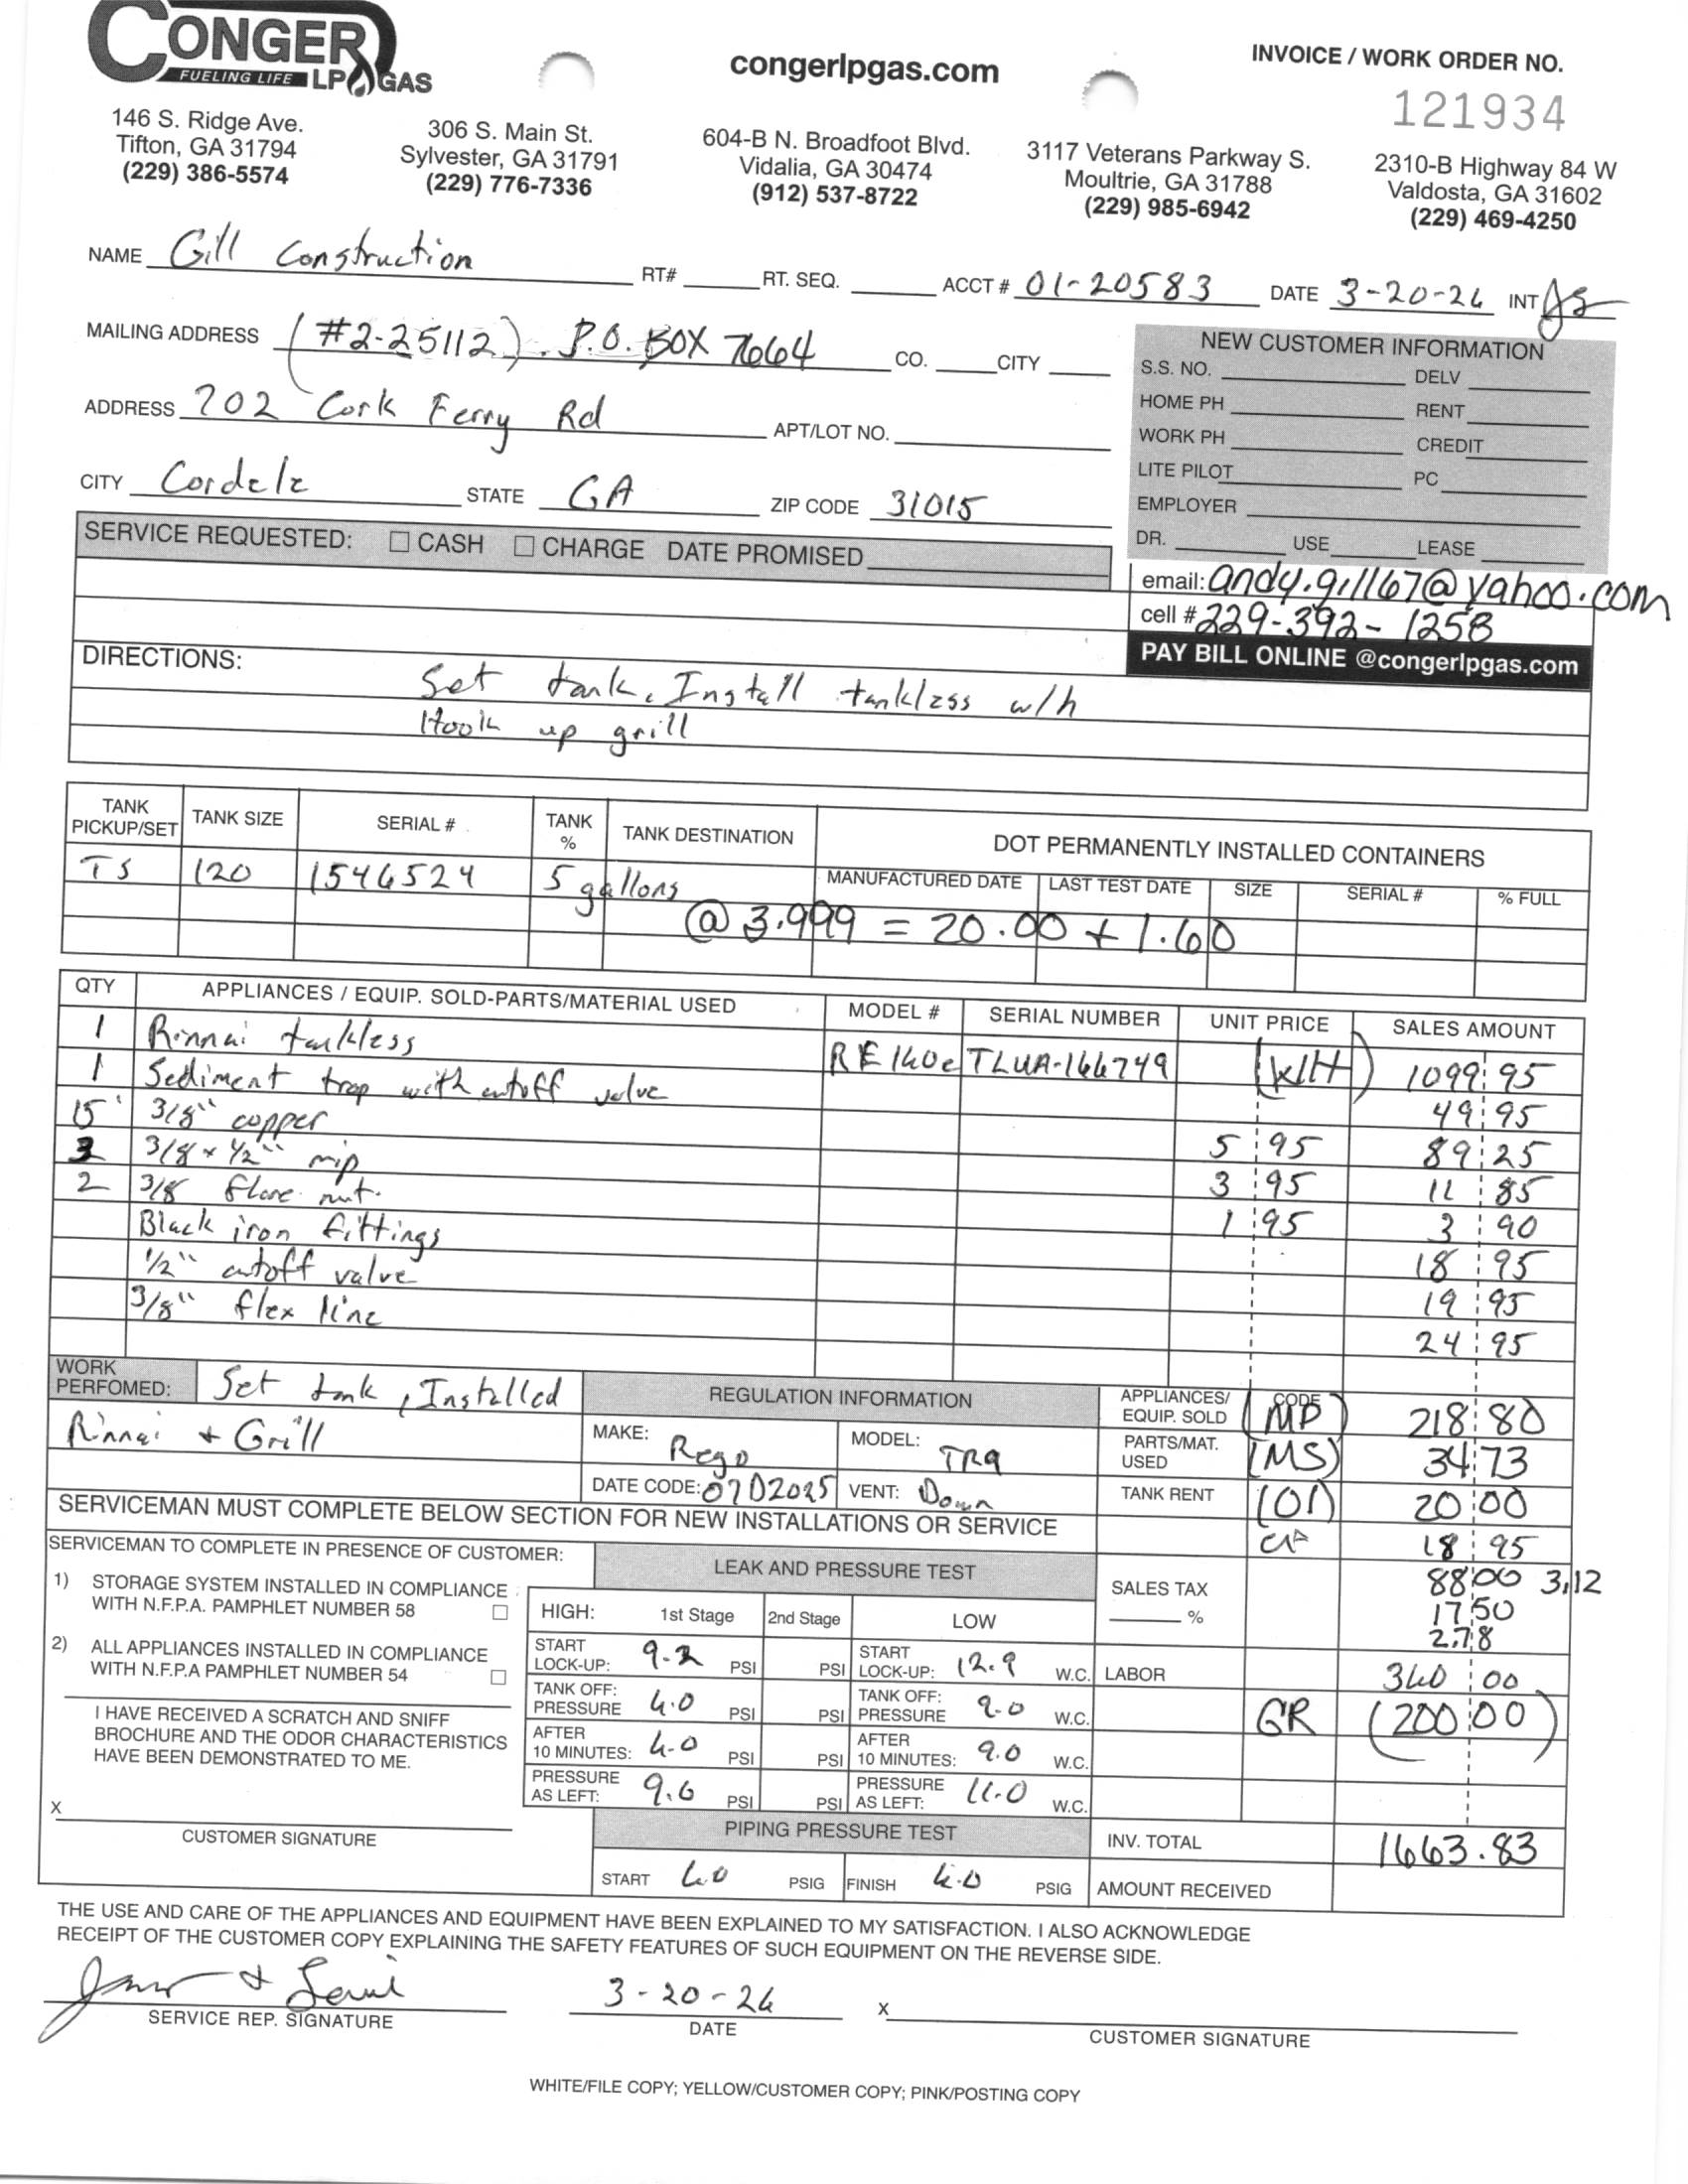 CONGER
FUELING LIFE LP GAS
congerlpgas.com
INVOICE / WORK ORDER NO.
121934
146 S. Ridge Ave.
Tifton, GA 31794
(229) 386-5574
306 S. Main St.
Sylvester, GA 31791
(229) 776-7336
604-B N. Broadfoot Blvd.
Vidalia, GA 30474
(912) 537-8722
3117 Veterans Parkway S.
Moultrie, GA 31788
(229) 985-6942
2310-B Highway 84 W
Valdosta, GA 31602
(229) 469-4250
NAME Gill Construction RT# RT. SEQ. ACCT # 01-20583 DATE 3-20-26 INT JS
MAILING ADDRESS (#2-25112) P.O. BOX 7664 CO. CITY
ADDRESS 702 Cork Ferry Rd APT/LOT NO.
CITY Cordele STATE GA ZIP CODE 31015
NEW CUSTOMER INFORMATION
S.S. NO. DELV
HOME PH RENT
WORK PH CREDIT
LITE PILOT PC
EMPLOYER
DR. USE LEASE
SERVICE REQUESTED: CASH CHARGE DATE PROMISED
email: andy.gill67@yahoo.com
cell # 229-392-1258
PAY BILL ONLINE @congerlpgas.com
DIRECTIONS:
Set tank, Install tankless w/h
Hook up grill
TANK PICKUP/SET TANK SIZE SERIAL # TANK % TANK DESTINATION DOT PERMANENTLY INSTALLED CONTAINERS
MANUFACTURED DATE LAST TEST DATE SIZE SERIAL # % FULL
TS 120 1546524 5 gallons
@ 3.999 = 20.00 + 1.60
QTY APPLIANCES / EQUIP. SOLD-PARTS/MATERIAL USED MODEL # SERIAL NUMBER UNIT PRICE SALES AMOUNT
1 Rinnai tankless RE160e TLUA-166749 (WH) 1099 95
1 Sediment trap with cutoff valve 49 95
15' 3/8" copper 5 95 89 25
3 3/8 x 1/2" mip 3 95 11 85
2 3/8 flare nut 1 95 3 90
Black iron fittings 18 95
1/2" cutoff valve 19 95
3/8" flex line 24 95
WORK PERFOMED: Set tank, Installed
Rinnai + Grill
REGULATION INFORMATION
MAKE: Rego MODEL: TR9
DATE CODE: 07D2025 VENT: Down
APPLIANCES/ EQUIP. SOLD CODE (MP) 218 80
PARTS/MAT. USED (MS) 34 73
TANK RENT (01) 20 00
18 95
SERVICEMAN MUST COMPLETE BELOW SECTION FOR NEW INSTALLATIONS OR SERVICE
SERVICEMAN TO COMPLETE IN PRESENCE OF CUSTOMER:
1) STORAGE SYSTEM INSTALLED IN COMPLIANCE
WITH N.F.P.A. PAMPHLET NUMBER 58
2) ALL APPLIANCES INSTALLED IN COMPLIANCE
WITH N.F.P.A PAMPHLET NUMBER 54
I HAVE RECEIVED A SCRATCH AND SNIFF
BROCHURE AND THE ODOR CHARACTERISTICS
HAVE BEEN DEMONSTRATED TO ME.
X
CUSTOMER SIGNATURE
LEAK AND PRESSURE TEST
HIGH: 1st Stage 2nd Stage LOW
START LOCK-UP: 9.2 PSI PSI START LOCK-UP: 12.9 W.C.
TANK OFF: PRESSURE 6.0 PSI PSI TANK OFF: PRESSURE 9.0 W.C.
AFTER 10 MINUTES: 6.0 PSI PSI AFTER 10 MINUTES: 9.0 W.C.
PRESSURE AS LEFT: 9.6 PSI PSI PRESSURE AS LEFT: 11.0 W.C.
PIPING PRESSURE TEST
START 6.0 PSIG FINISH 6.0 PSIG
SALES TAX
%
88 00 3.12
17 50
2.78
LABOR 360 00
GR (200 00)
INV. TOTAL 1663.83
AMOUNT RECEIVED
THE USE AND CARE OF THE APPLIANCES AND EQUIPMENT HAVE BEEN EXPLAINED TO MY SATISFACTION. I ALSO ACKNOWLEDGE
RECEIPT OF THE CUSTOMER COPY EXPLAINING THE SAFETY FEATURES OF SUCH EQUIPMENT ON THE REVERSE SIDE.
3-20-26 X
SERVICE REP. SIGNATURE DATE CUSTOMER SIGNATURE
WHITE/FILE COPY; YELLOW/CUSTOMER COPY; PINK/POSTING COPY